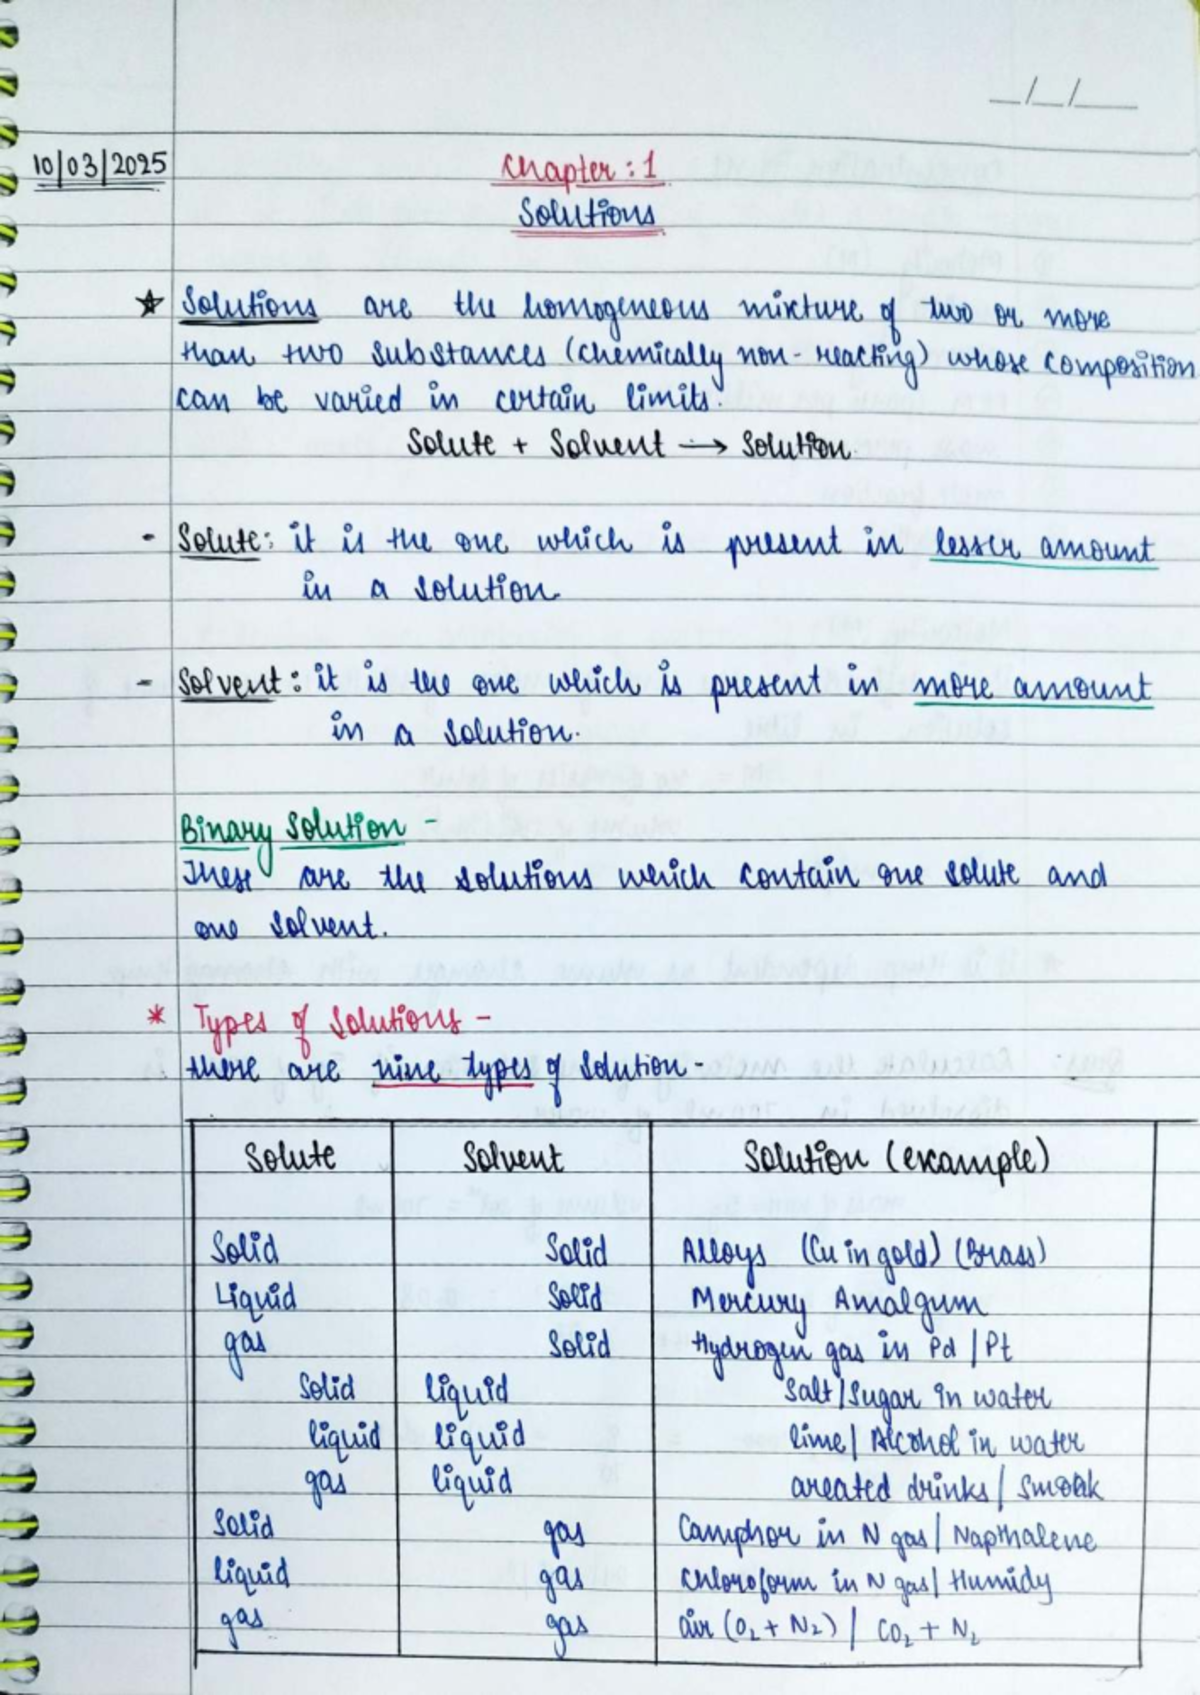 __/__/____
10/03/2025
Chapter : 1
Solutions
☆ Solutions are the homogeneous mixture of two or more
than two substances (chemically non-reacting) whose composition
can be varied in certain limits.
Solute + Solvent → Solution
- Solute: it is the one which is present in lesser amount
in a solution.
- Solvent: it is the one which is present in more amount
in a solution.
Binary Solution -
These are the solutions which contain one solute and
one solvent.
* Types of solutions -
there are nine types of solution -
Solute Solvent Solution (example)
Solid Solid Alloys (Cu in gold) (Brass)
Liquid Solid Mercury Amalgum
gas Solid Hydrogen gas in Pd / Pt
Solid liquid Salt/Sugar in water
liquid liquid lime/ Alcohol in water
gas liquid areated drinks /
Solid gas Camphor in N gas/ Napthalene
liquid gas Chloroform in N gas/ Humidy
gas gas air (O₂ + N₂) / CO₂ + N₂